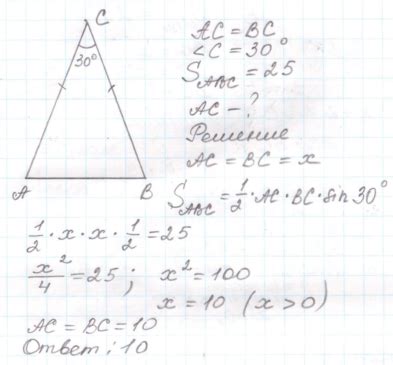 C
30°
A B
AC = BC
<C = 30°
S ABC = 25
AC – ?
Решение
AC = BC = x
S ABC = 1/2 · AC · BC · sin 30°
1/2 · x · x · 1/2 = 25
x²/4 = 25 ; x² = 100
x = 10 (x > 0)
AC = BC = 10
Ответ: 10